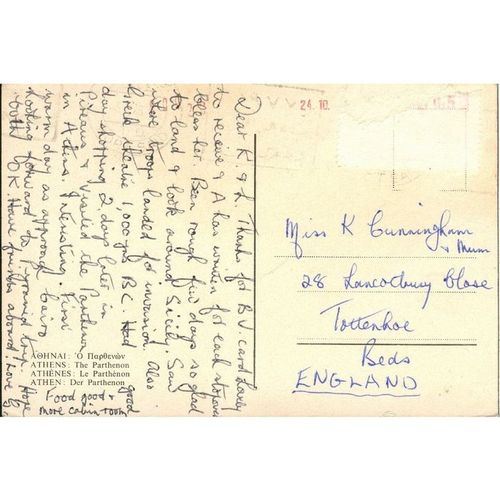 Dear K. & L. Thanks for B.V. card. Lovely
to receive & A has written for each stopover
bless her. Been rough few days so glad
to land & look around Sicily. Saw
where troops landed for invasion also
Greek theatre 1,000 yrs B.C. Had good
day shopping 2 days later in
Piraeus & visited the Parthenon
in Athens. Interesting. First
warm day as approach Cairo
Looking forward to Pyramid trip. Hope
both OK. Have friends aboard. Love
ΑΘΗΝΑΙ: Ὁ Παρθενών
ATHENS: The Parthenon
ATHÈNES: Le Parthénon
ATHEN: Der Parthenon
Food good &
more cabin room
24. 10.
Miss K Cunningham
& Mum
28 Close
Totternhoe
Beds
ENGLAND